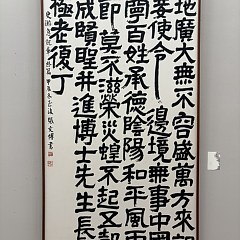 地廣大無不容盛萬方來朝
妾使令邊境無事中國
百姓承德陰陽和平風雨
節莫不滋榮災蝗不起
成賢聖并進博士先生長
極老復丁
史游急就章